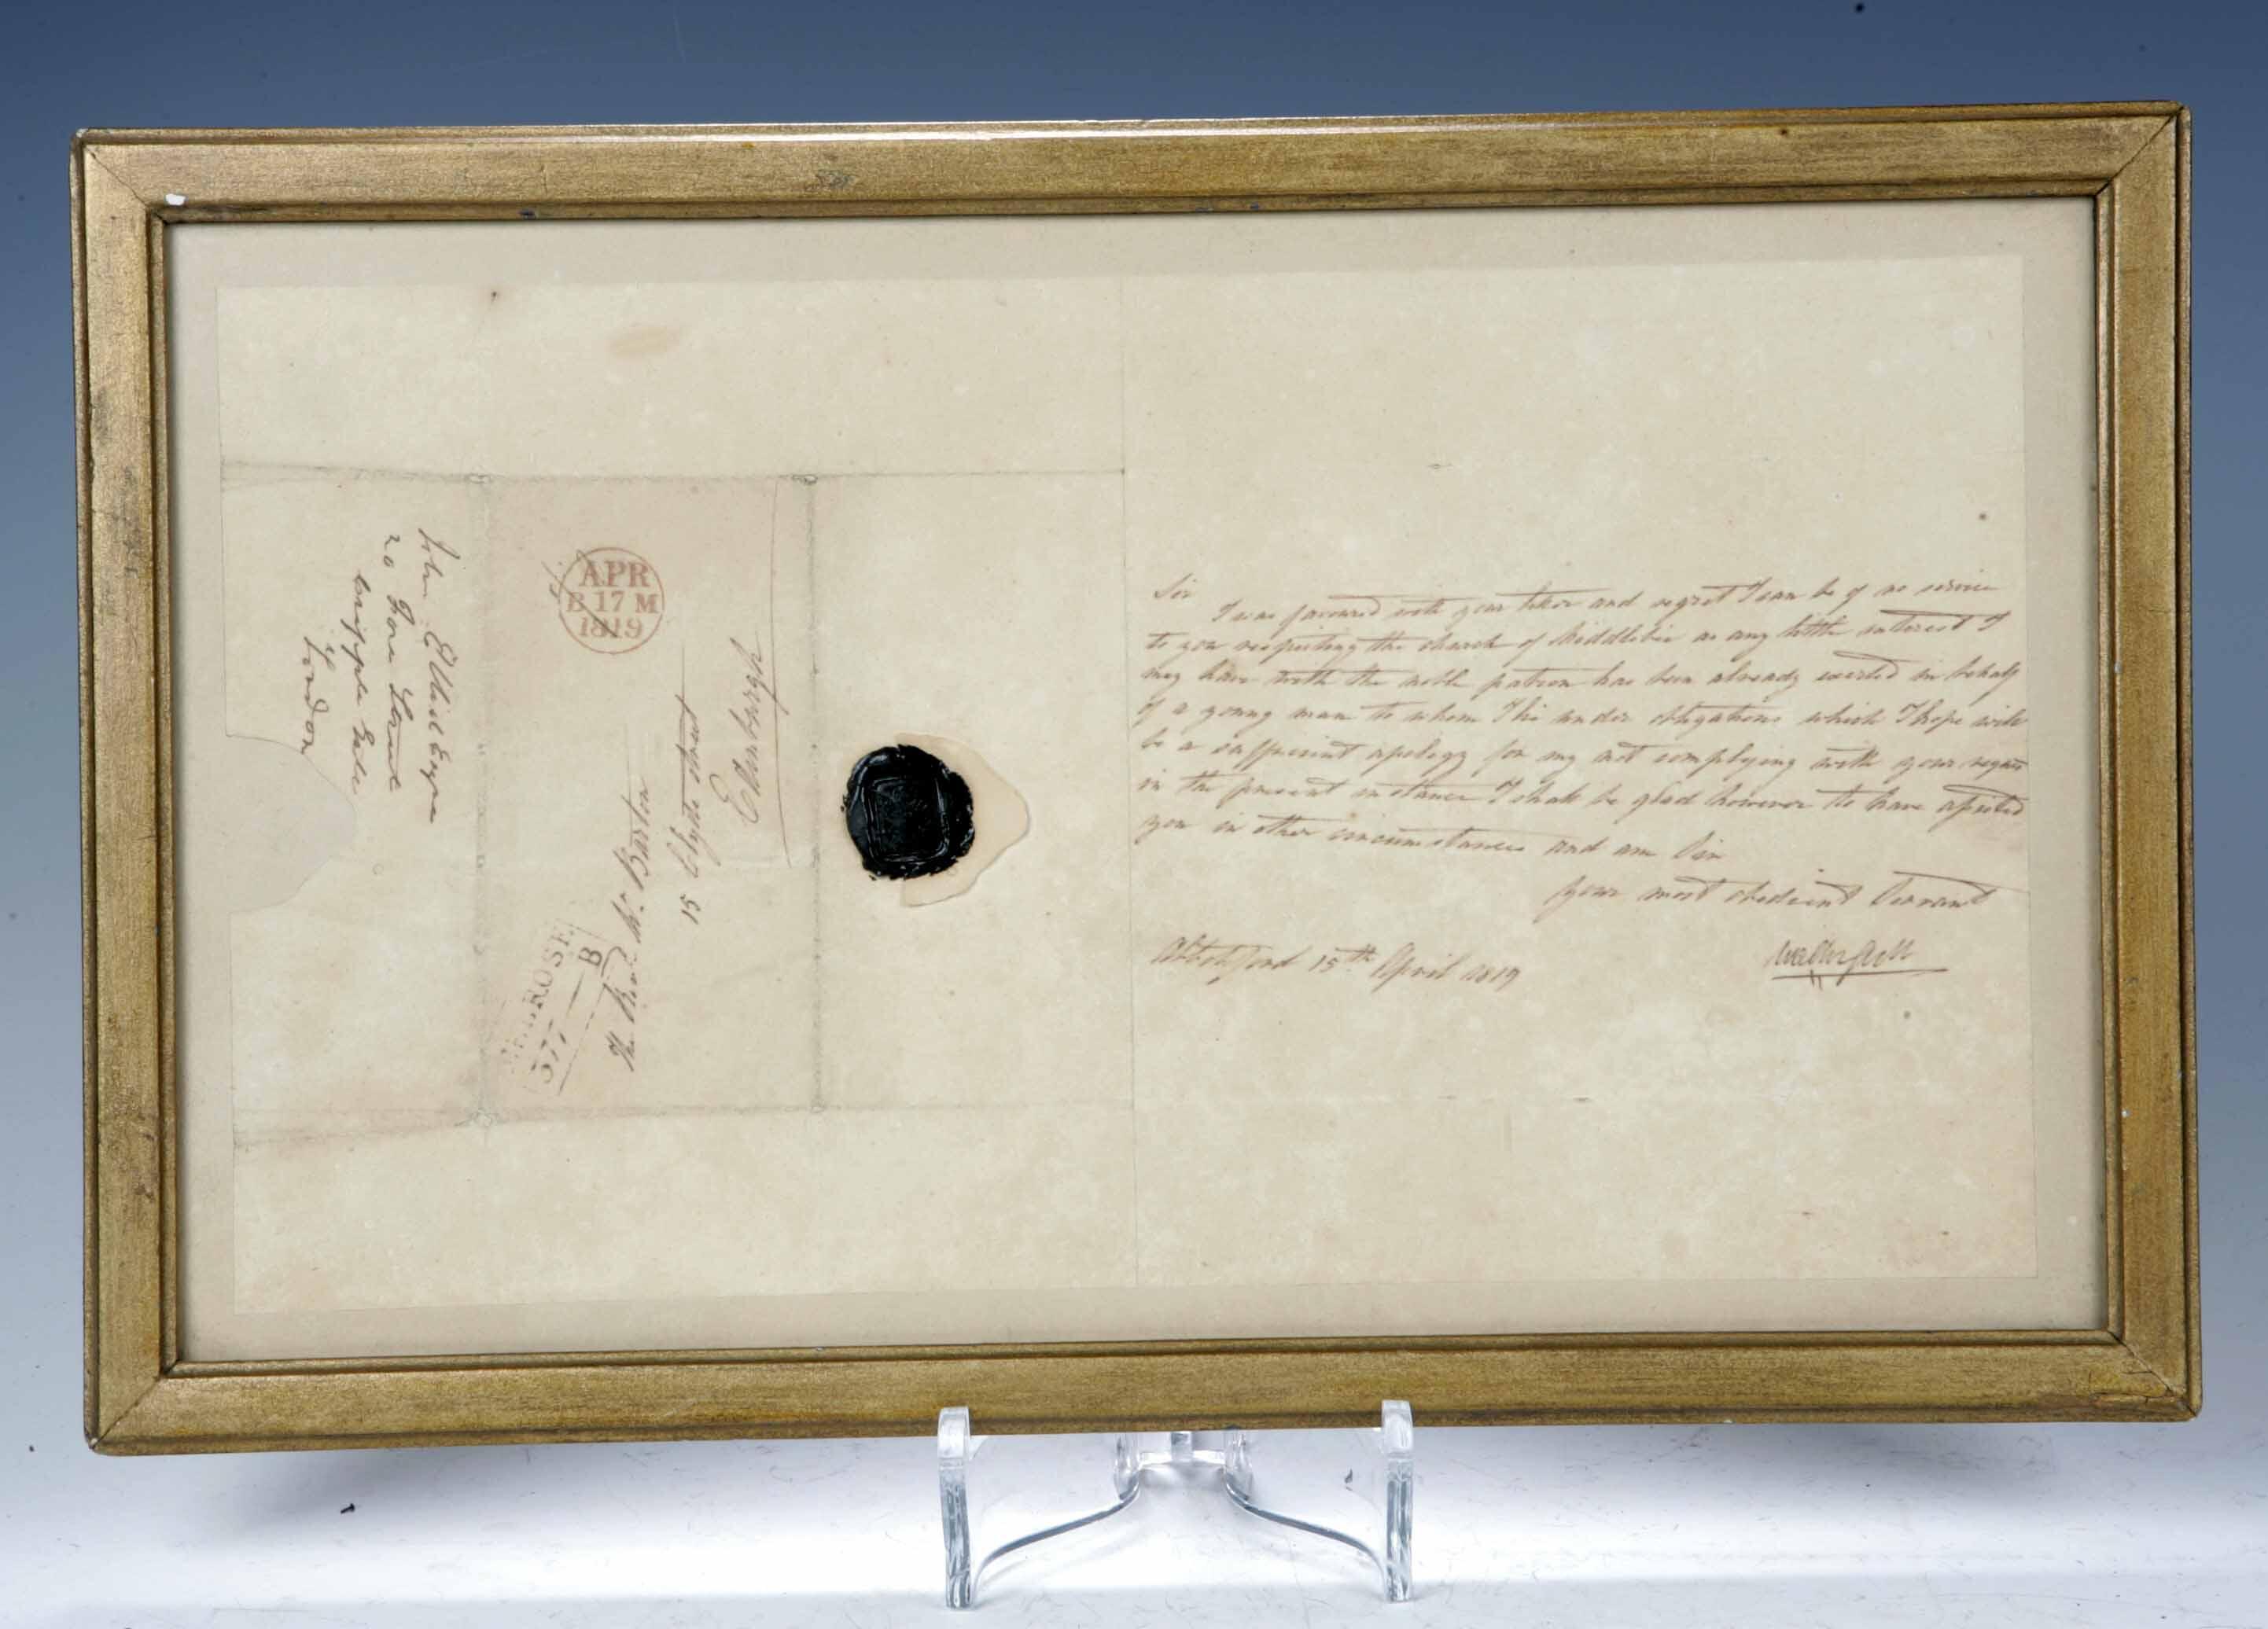 John Ellis Esqre
20 Fore Street
Cripple Gate
London
APR
B 17 M
1819
MELROSE
377 B
The Revd Mr. Barton
15 Clyde Street
Edinburgh
Sir
I was favoured with your letter and regret I can be of no service
to you respecting the church of Middlebie as any little interest I
may have with the noble patron has been already exerted in behalf
of a young man to whom I lie under obligations which I hope will
be a sufficient apology for my not complying with your request
in the present instance I shall be glad however to have assisted
you in other circumstances and am Sir
your most obedient Servant
Walter Scott
Abbotsford 15th April 1819